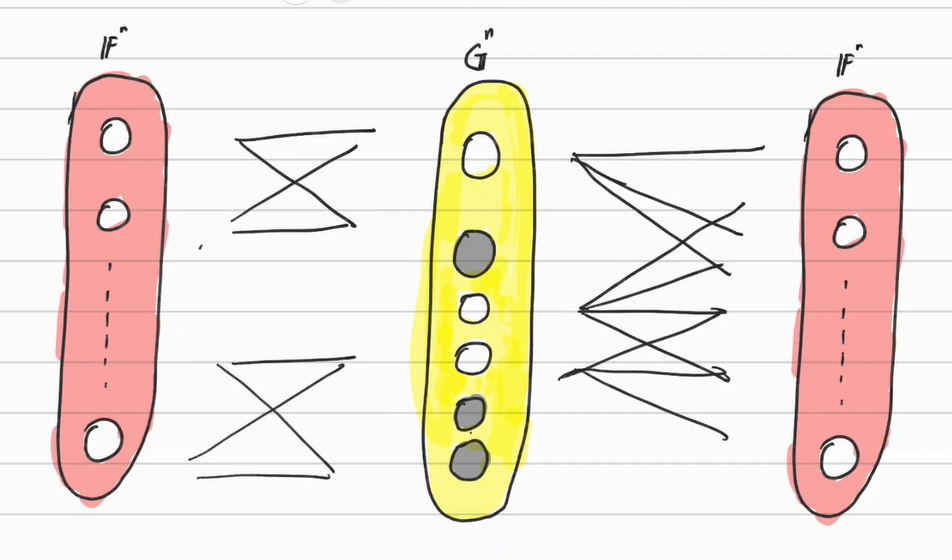 𝔽ⁿ
𝔾ⁿ
𝔽ⁿ